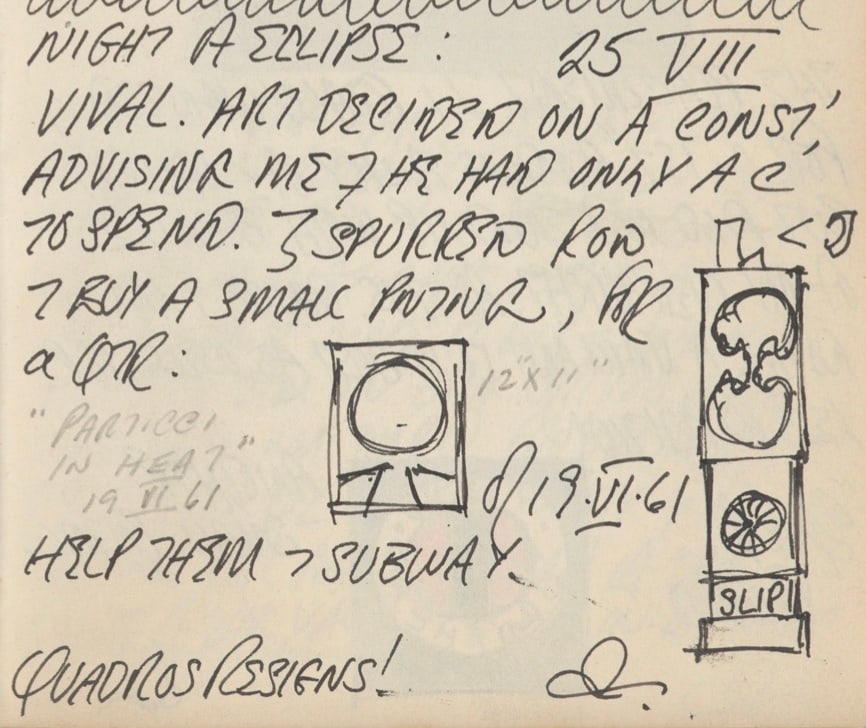 NIGHT A ECLIPSE: 25 VIII
VIVAL. ART DECIDED ON A CONST'
ADVISING ME T HE HAD ONLY A C'
TO SPEND. I SPURRED ROD
T BUY A SMALL PNTING, FOR
a QTR:
12"X11"
"PARTICCI
IN HEAT"
19 VI 61
19.VI.61
HELP THEM > SUBWAY.
SLIP
QUADROS RESIGNS!